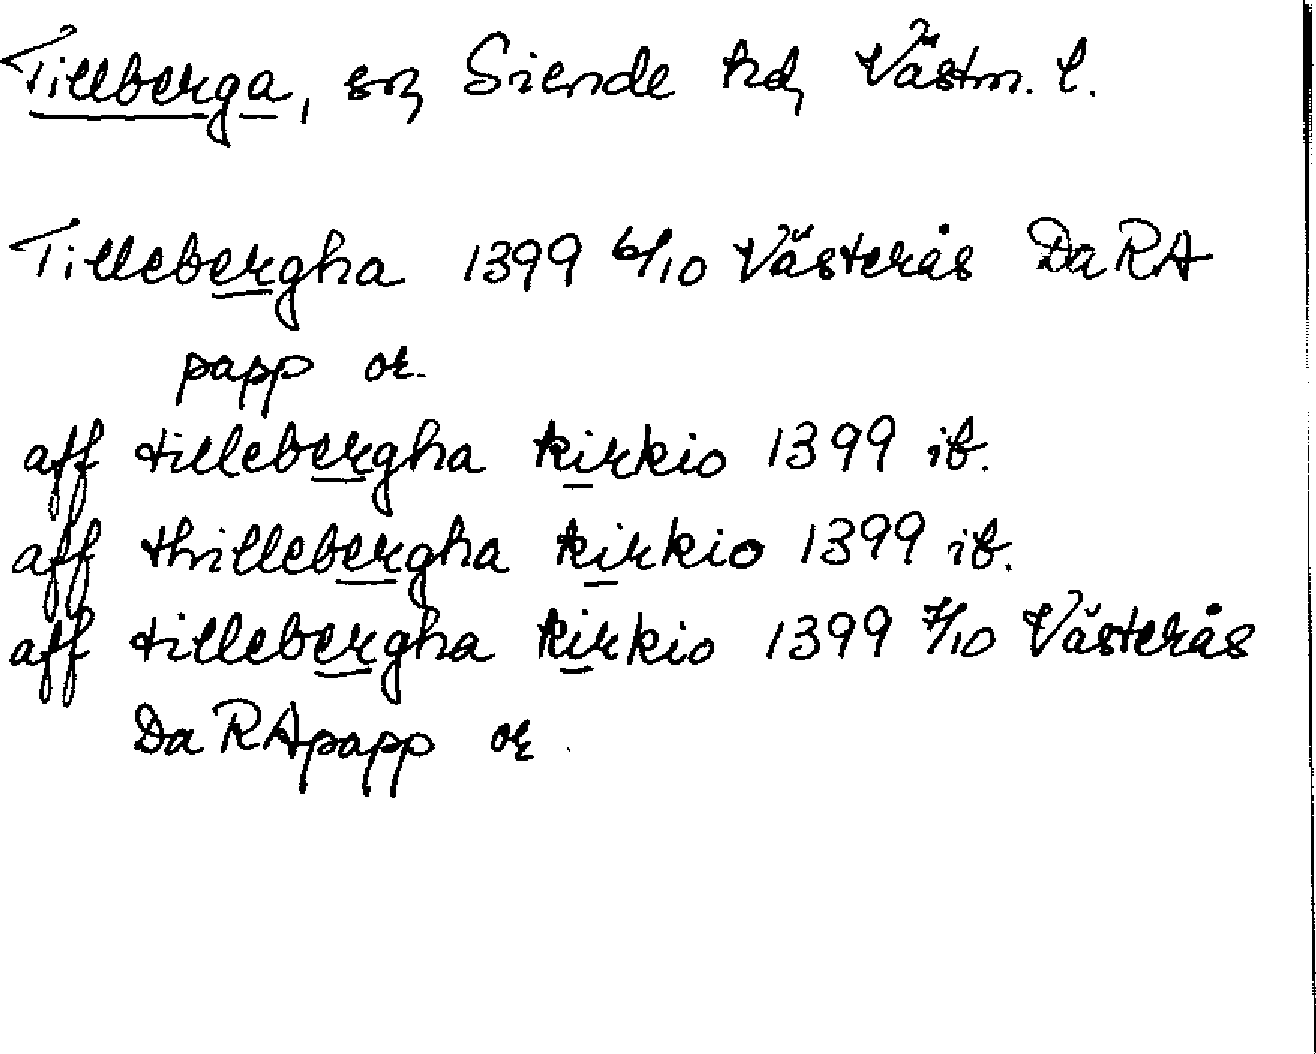 Tillberga, sn, Siende hd, Västm. l.
Tillebergha 1399 6/10 Västerås DaRA
papp or.
aff tillebergha kirkio 1399 ib.
aff thillebergha kirkio 1399 ib.
aff tillebergha kirkio 1399 7/10 Västerås
DaRApapp or.